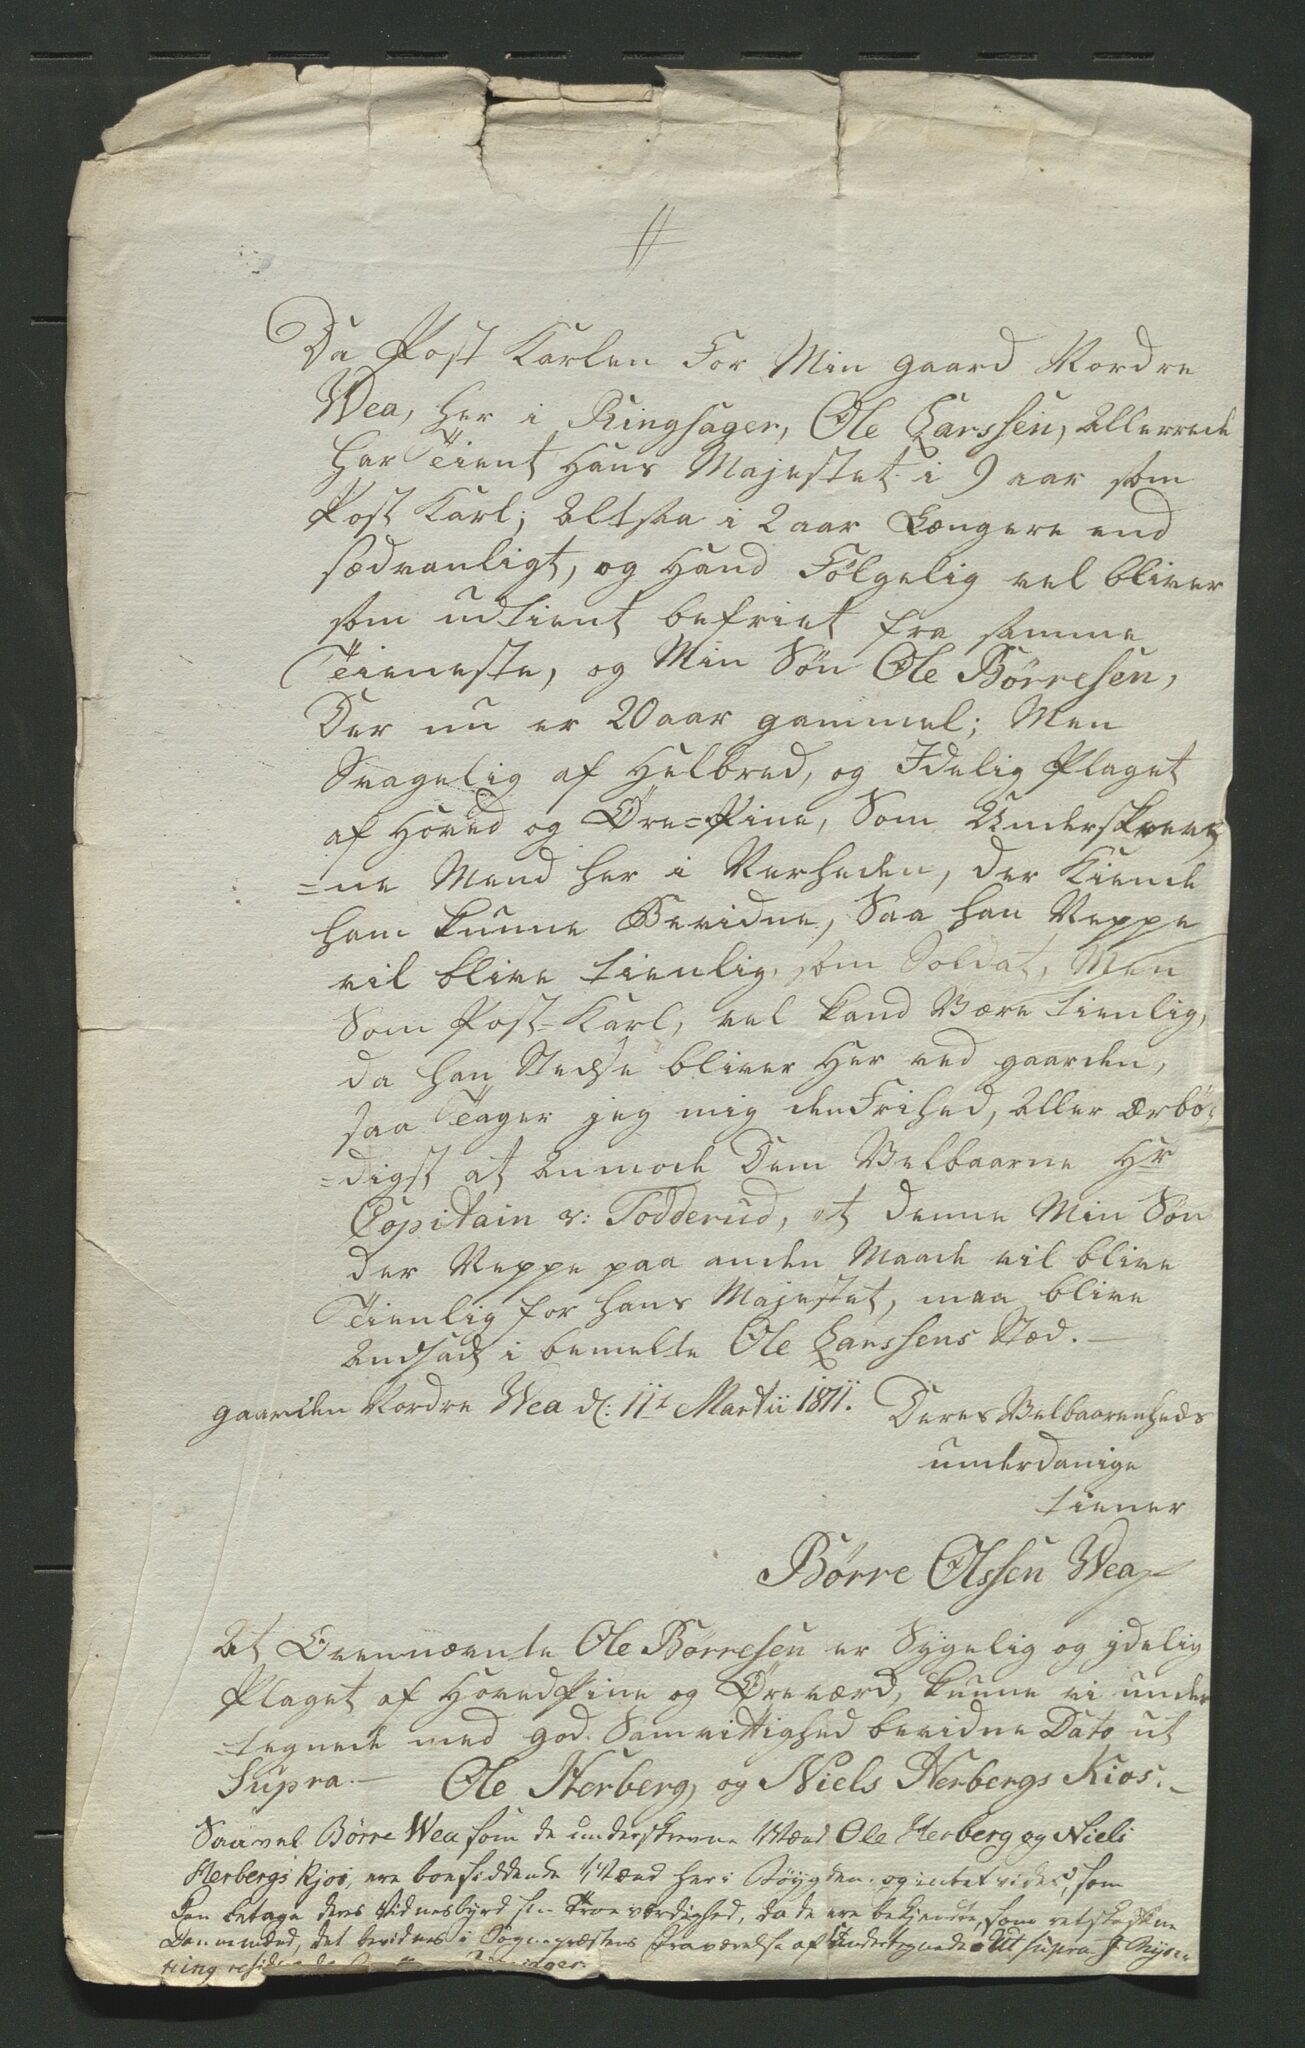 Da Post Karlen For Min gaard Nordre
Wea, her i Ringsager, Ole Larssen, allerrede
har Tient Hans Majestet i 9 aar som
Post Karl; altsaa i 2 aar Længere end
sædvanligt, og Hand Følgelig vel bliver
som udtient befriet fra samme
Tieneste, og Min Søn Ole Børresen,
Der nu er 20 aar gammel; Men
Svagelig af Helbred, og Idelig Plaget
af Hoved og Øre=Pine, Som Underskreve
=ne Mend her i Nerheden, der Kiende
ham kunne Bevidne, Saa han Neppe
vil blive tienlig som Soldat, Men
Som Post=Karl, vel kand Være tienlig,
da han Stedse bliver Her ved gaarden,
saa Tager jeg mig den Frihed, aller ærbø=
=digst at anmode Dem Velbaarne Hr
Capitain v: Todderud, at denne Min Søn
der Neppe paa anden Maade vil blive
Tienlig for Hans Majestet, maa blive
andsadt i bemelte Ole Larssens Stæd.—
gaarden Nordre Wea d: 11t Martii 1811. Deres Velbaarenheds
underdanige
tiener
Børre Olssen Wea
At Ovennævnte Ole Børresen er Sygelig og ydelig
Plaget af HovedPine og Øreværd, kunne vi under
=tegnede med god Samvittighed bevidne Dato ut
Supra.— Ole Herberg, og Niels Herbergs Kios.—
Saavel Børre Wea som de underskrevne Mænd Ole Herberg og Niels
Herbergs Kjos, ere boesiddende Mænd her i Bøygden, og intet vides, som
kan betage deres Vidnesbyrd sin Troeværdighed, da de ere bekjendte som retskafne
Dannemænd, det bevidnes i Sognepræstens Fraværelse af Undertegnede Ut supra